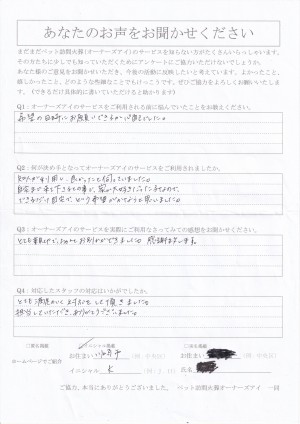 あなたのお声をお聞かせください
まだまだペット訪問火葬(オーナーズアイ)のサービスを知らない方がたくさんいらっしゃいます。
その方たちに少しでも知っていただくためにアンケートにご協力いただけないでしょうか。
あなた様のご意見をお聞かせいただき、今後の活動に反映したいと考えています。よかったこと、
嬉しかったこと、どのような些細なことでもけっこうです。ぜひご協力をよろしくお願いいたします。
(できるだけ具体的に書いていただけると助かります)
Q1:オーナーズアイのサービスをご利用される前に悩んでいたことをお教えください。
希望の日時にお願いできるか心配でした。
Q2:何が決め手となってオーナーズアイのサービスをご利用されましたか。
知人が利用し、良かったと伺っていました。
自宅まで来て下さるとの事で、家が大好きだった子ですので、
できるだけ自宅で、という希望がかなうと思いました。
Q3:オーナーズアイのサービスを実際にご利用なさってみての感想をお聞かせください。
とても親切で、ゆっくりお別れができました。感謝します。
Q4:対応したスタッフの対応はいかがでしたか。
とても清潔かつ丁寧に対応して頂きました。
担当していただき、ありがとうございました。
□実名掲載
イニシャル掲載
□実名掲載
ホームページでご紹介
お住まい
(例:中央区)
お住まい
(例:中央区)
イニシャル K
(例:J、H)
氏名
ご協力、本当にありがとうございました。 ペット訪問火葬オーナーズアイ 一同